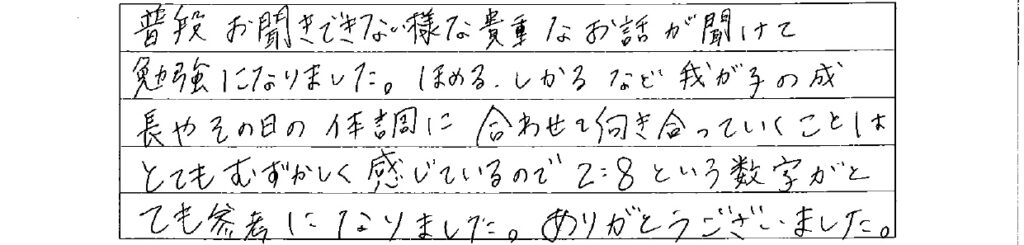 普段お聞きできない様な貴重なお話が聞けて
勉強になりました。ほめる、しかるなど我が子の成
長やその日の体調に合わせて向き合っていくことは
とてもむずかしく感じているので2:8という数字がと
ても参考になりました。ありがとうございました。